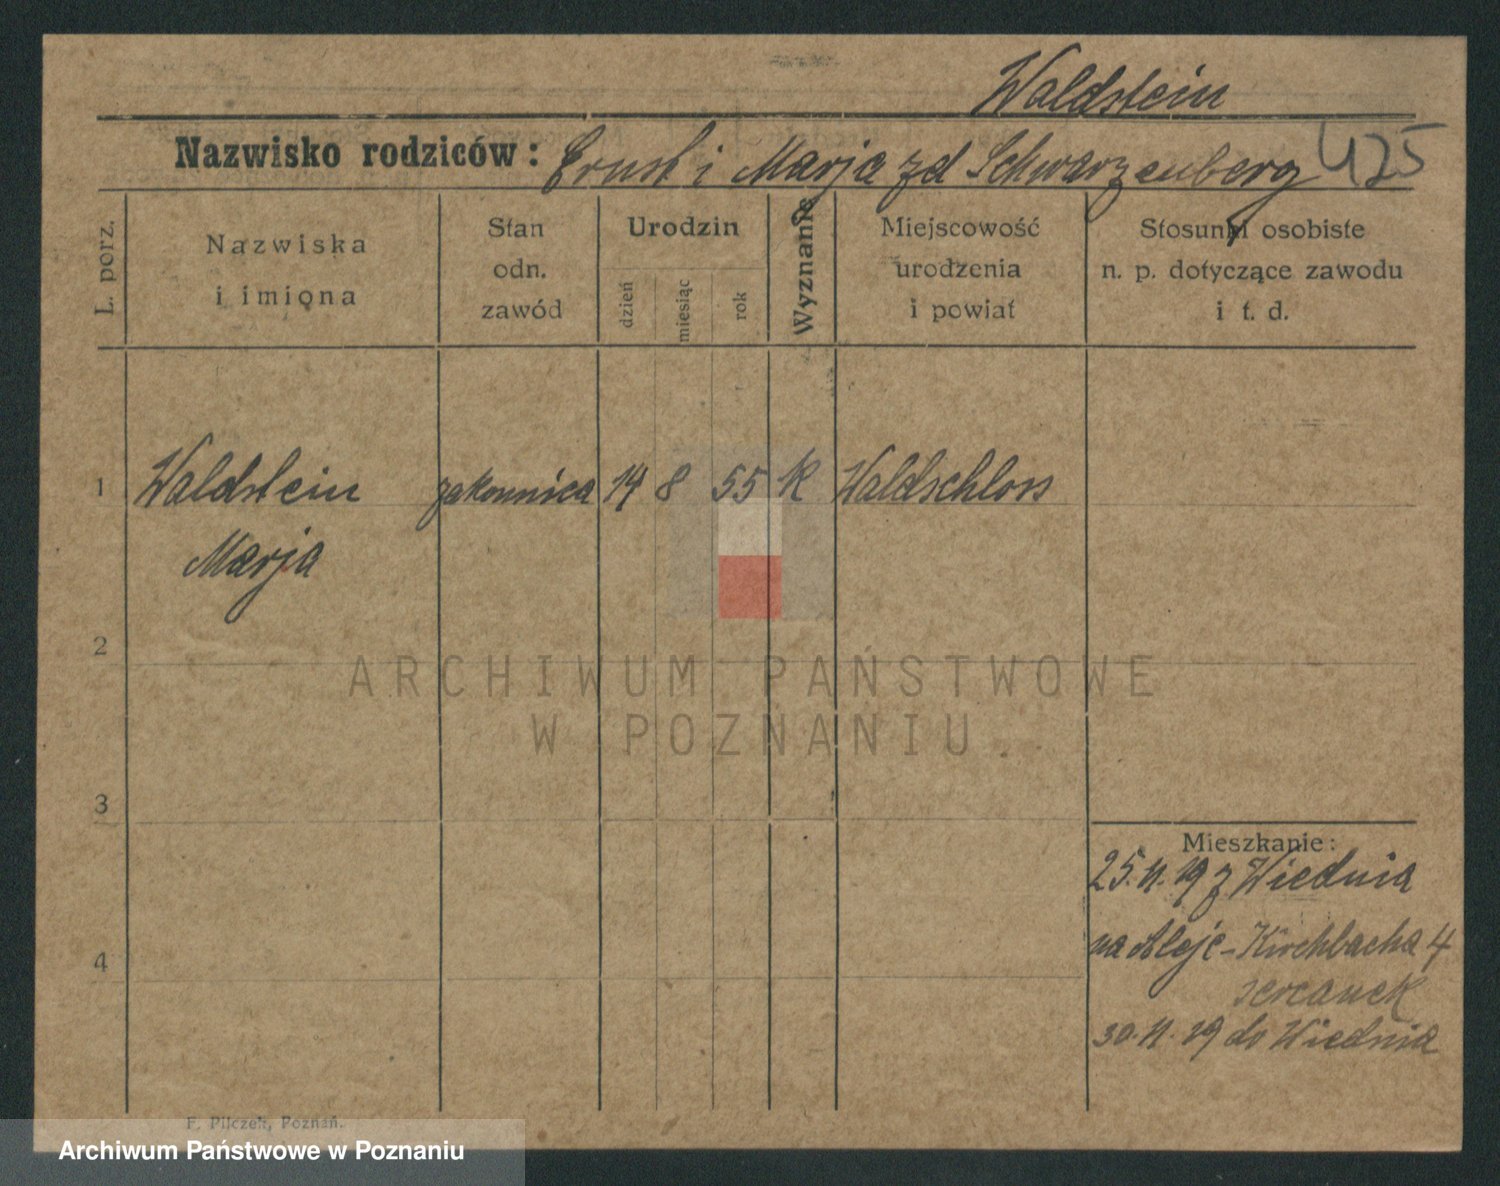 Waldstein
Nazwisko rodziców: Ernst i Marja zd Schwarzenberg 425
L. porz.
Nazwiska
i imiona
Stan
odn.
zawód
Urodzin
dzień
miesiąc
rok
Wyznanie
Miejscowość
urodzenia
i powiat
Stosunki osobiste
n. p. dotyczące zawodu
i t. d.
1 Waldstein zakonnica 14 8 55 K Waldschloss
Marja
2
ARCHIWUM PAŃSTWOWE
W POZNANIU
3
Mieszkanie:
25.11.19 z Wiednia
na Aleje-Kirchbacha 4
4
sercanek
30.11.19 do Wiednia
F. Pilczek, Poznań.
Archiwum Państwowe w Poznaniu